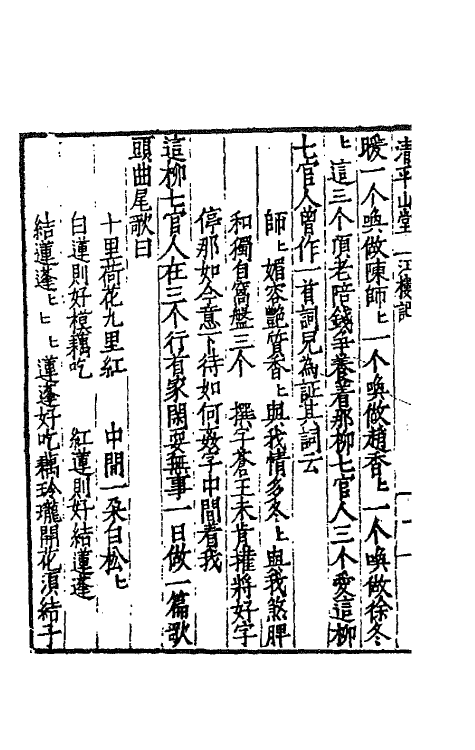 清平山堂　江樓記
暖一个喚做陳師〻一个喚做趙香〻一个喚做徐冬
〻這三个頂老陪錢爭養着那柳七官人三个愛這柳
七官人曾作一首詞兒為証其詞云
師〻媚容艷質香〻與我情多冬〻與我煞脾
和獨自窩盤三个　撰字蒼王未肯權將好字
停那如今意下待如何姦字中間着我
這柳七官人在三个行首家閑耍無事一日做一篇歌
頭曲尾歌曰
十里荷花九里紅　中間一朶白松〻
白蓮則好摸藕吃　紅蓮則好結蓮蓬
結蓮蓬〻〻〻蓮蓬好吃藕玲瓏開花須結子